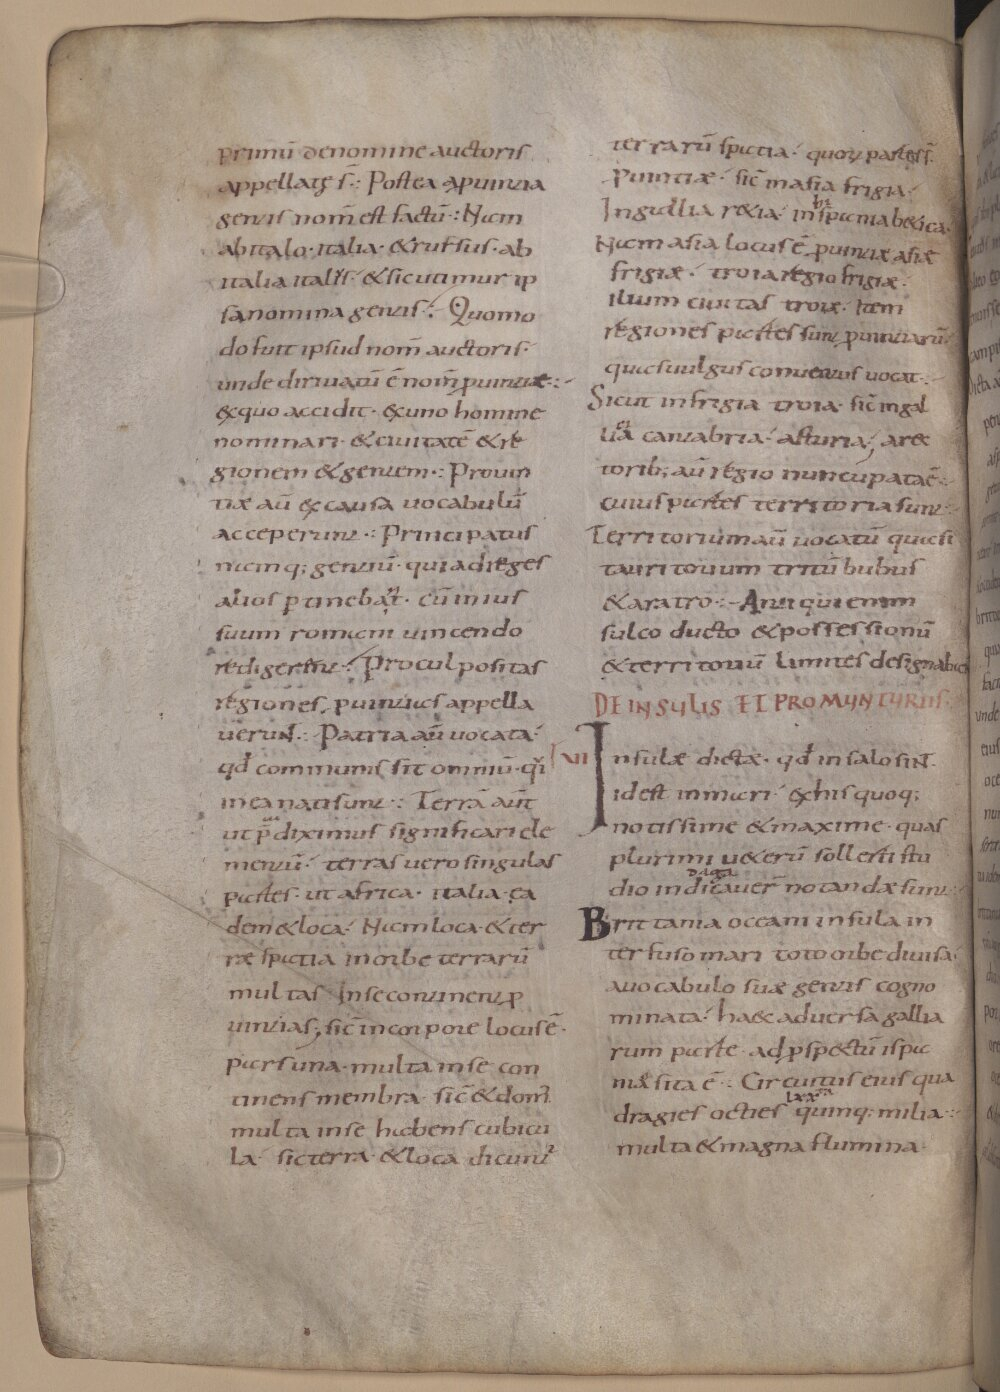 primū denomine auctoris
appellatę s̄. Postea aprouintia
gentis nom̄ est factū. Nam
abitalo italia. & rursus ab
italia italis & sic utimur ip
sa nomina gentis. Quomo
do fuit ipsud nom̄ auctoris.
unde diriuatū ē nom̄ prouintiae.
ex quo accidit. ex uno homine
nominari. & ciuitatē & re
gionem & gentem. Prouin
tiae aū ex causa uocabulū
acceperunt. Principatus
namq; gentiū. qui ad reges
alios ptinebat. cū in ius
suum romani uincendo
redigerent. Procul positas
regiones, prouintias appella
uerunt. Patria aū uocata
qd̄ communis sit omniū. qui
in ea nati sunt. Terra aūt
ut p̄diximus significari ele
mentū. terras uero singulas
partes. ut africa. italia. ea
dem & loca. Nam loca & ter
rae spatia in orbe terrarū
multas In se continent p
uintias, sic̄ in corpore locus ē.
pars una. multa in se con
tinens membra. sic̄ & dom̄.
multa in se habens cubicu
la sic terra & loca dicunt
terrarū spatia. quorū partes s̄.
Puintiae. sic̄ in asia frigia.
In gallia retia. in spania betica.
Nam asia locus ē. prouintiae asiae
frigiae. troia regio frigiae.
ilium ciuitas troiae. Item
regiones partes sunt prouintiarū.
quas uulgus conuentus uocat.
Sicut in frigia troia. sic̄ in gal
lia cantabria. asturia, a re&
toribꝫ aū regio nuncupata ē.
cuius partes territoria sunt.
Territorium aū uocatū quasi
tauritorium tritū bubus
& aratro. Antiqui enim
sulco ducto & possessionū
& territoriū limites designabant
DE INSULIS ET PROMUNTURIIS.
VI
Insulae dictae. qd̄ in salo sint.
id est in mari. ex his quoq;
notissime & maxime. quas
plurimi ueterū sollerti stu
dio indicauer̄ notandae sunt.
Brittania oceani insula in
terfuso mari toto orbe diuisa
a uocabulo suae gentis cogno
minata. haec aduersa gallia
rum parte. ad pspectū ispa
niae sita ē. Circuitus eius qua
dragies octies quinq; milia.
multa & magna flumina.